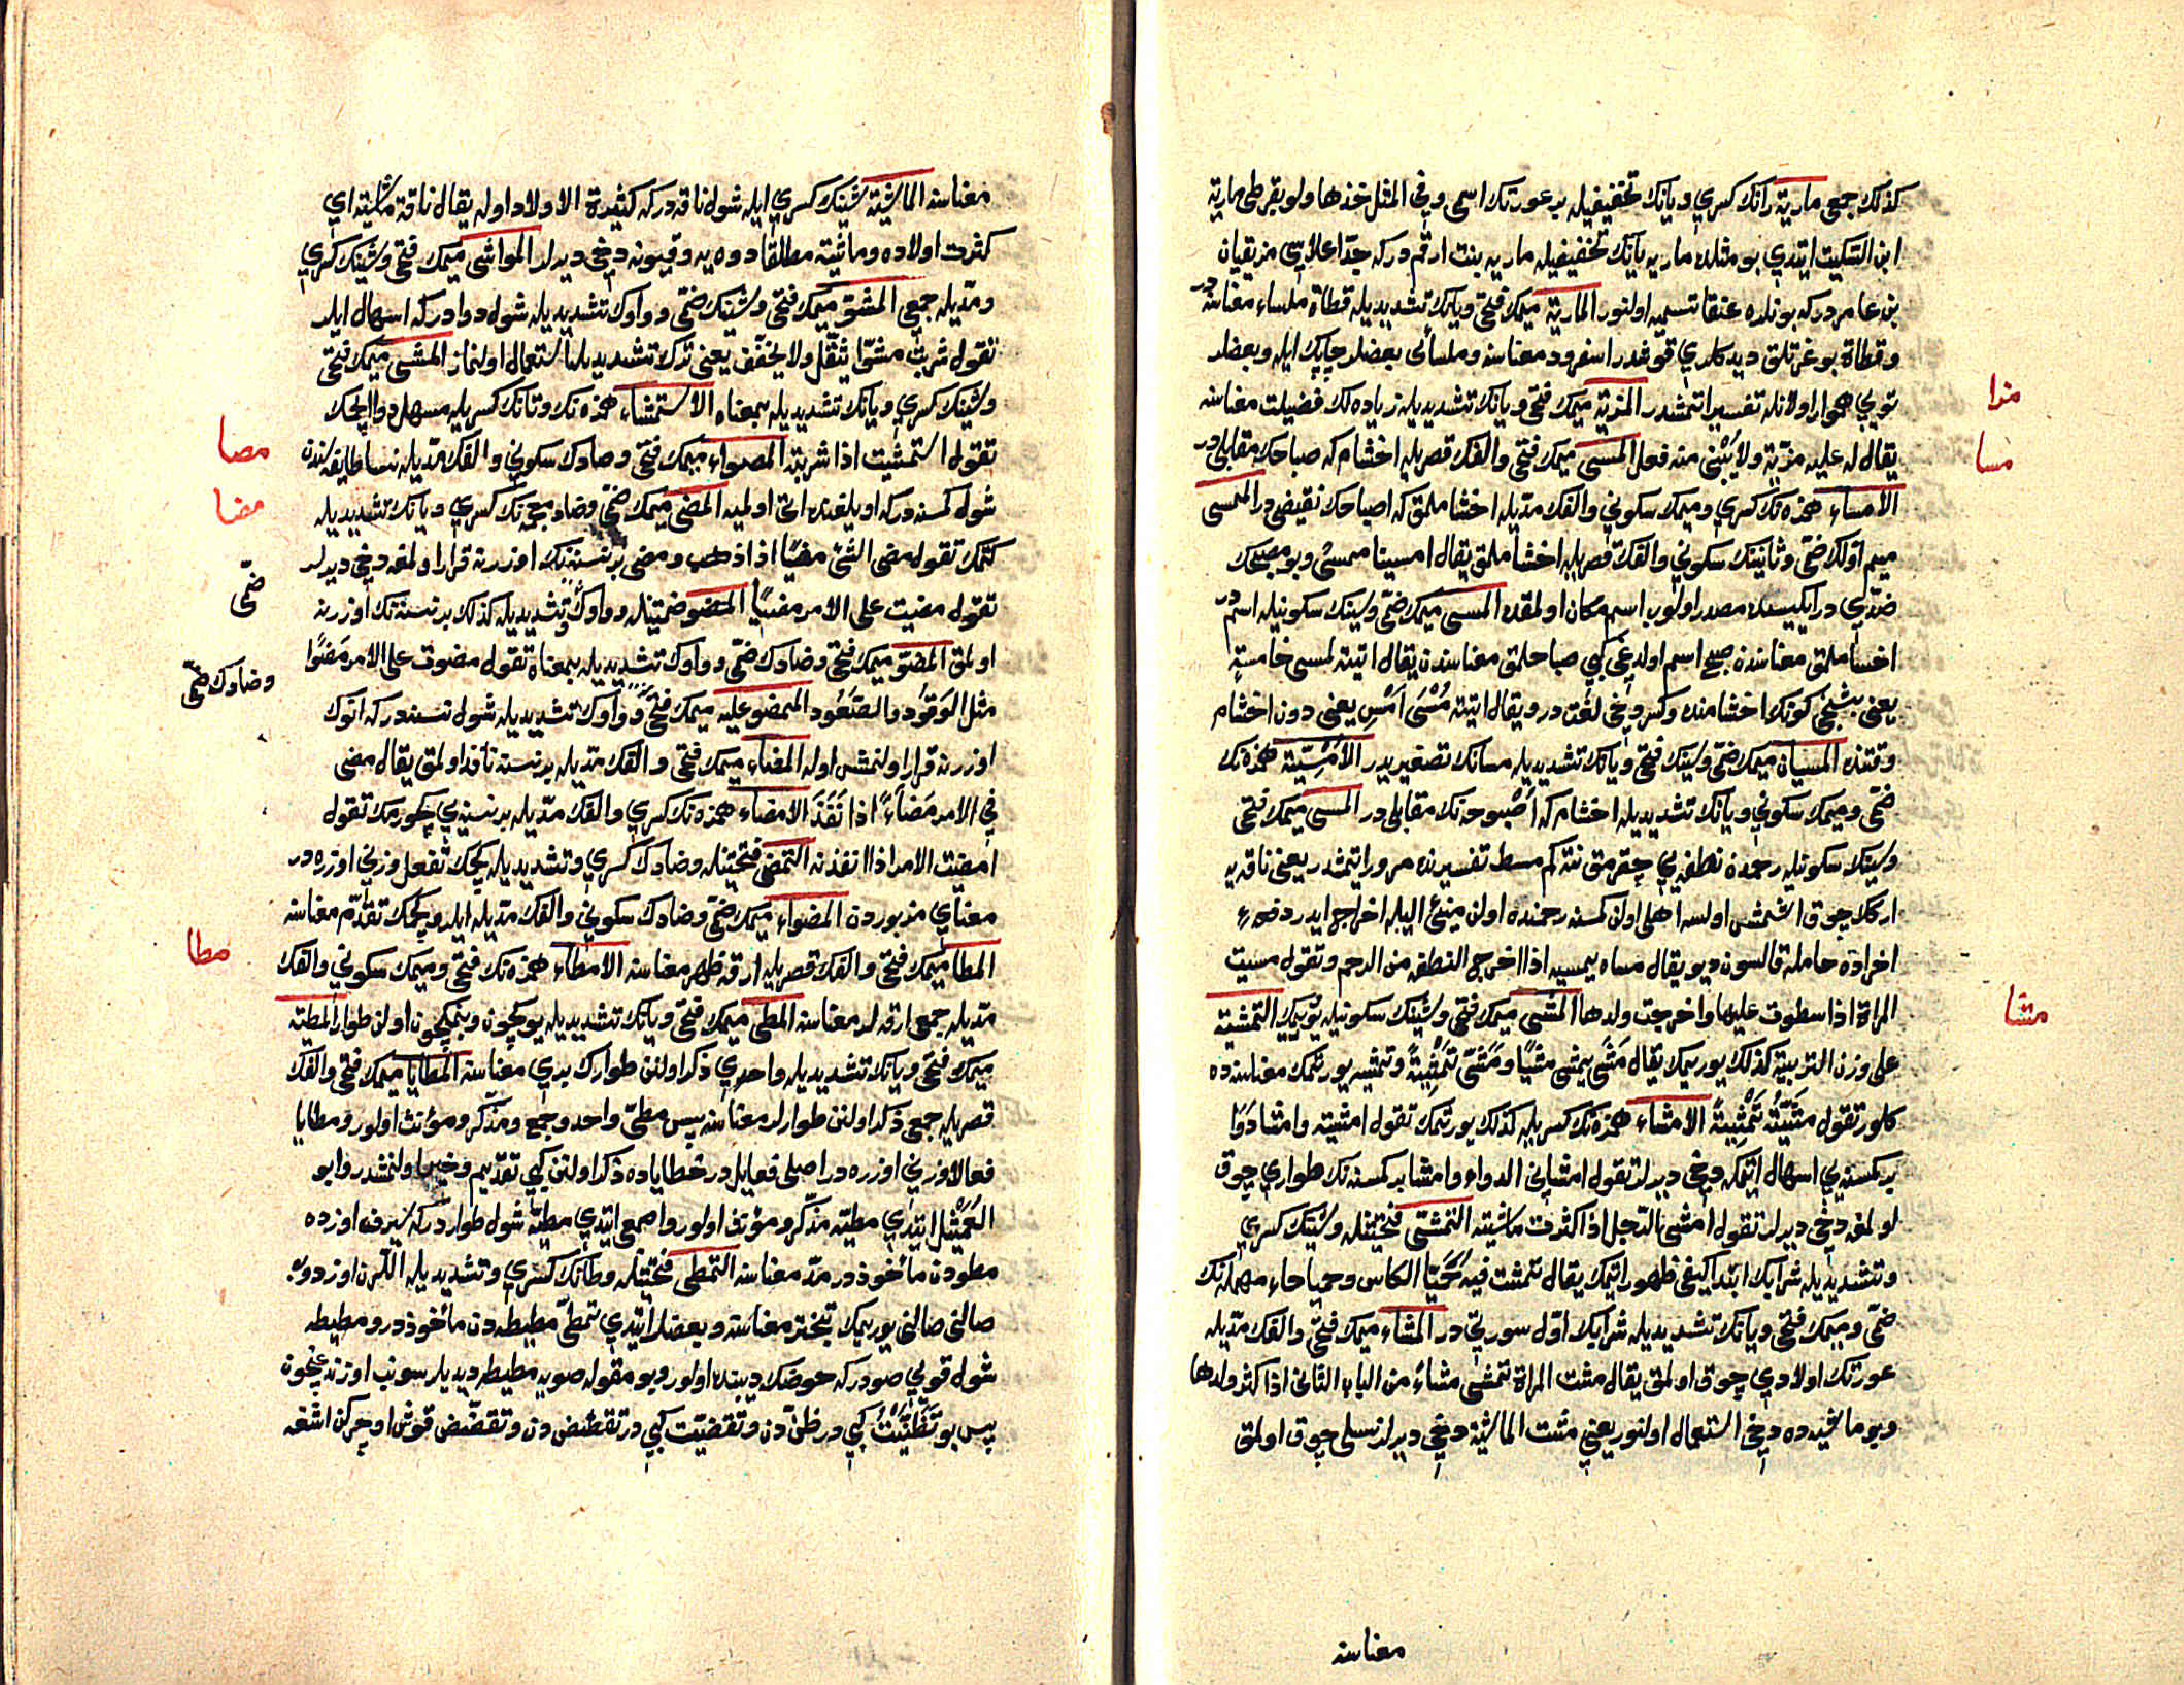 كذلك جمعى مارية رانك كسرى ويانك تخفيفيله بر عورتك اسمى وفى المثل خذها ولو بقرطى مارية
ابن السكيت ايتدى بو مثلده ماريه يانك تخفيفيله ماريه بنت ارقم در كه جدّ اعلاسى مزيقيان
بن عامر در كه بونلره عنقا تسميه اولنور المارية ميمك فتحى ويانك تشديديله قطاة ملساء معناسنه در
وقطاة بوغرتلق ديدكلرى قوشدر اسفرود معناسنه وملسائى بعضلر چاپك ايله وبعضلر
تويى هموار اولانله تفسير اتمشدر المزية ميمك فتحى ويانك تشديديله زياده لك فضيلت معناسنه
مزا
يقال له عليه مزية ولا يبنى منه فعل المسى ميمك فتحى والفك قصريله اخشام كه صباحك مقابلى در
مسا
الامساء همزه نك كسرى وميمك سكونى والفك مديله اخشاملمق كه اصباحك نقيضى در الممسى
ميم اولك ضمى وثانينك سكونى والفك قصريله اخشاملمق يقال امسينا ممسى وبو مصبحك
ضدى در ايكيسيده مصدر اولوب اسم مكان اولمقده المسى ميمك ضمى وسينك سكونيله اسم در
اخساملمق معناسندن صبح اسم اولدغى كبى صباحلمق معناسندن يقال اتيته لمسى خامسة
يعنى بشنجى كونك اخشامنده وكسر دخى لغت در ويقال اتيته مُسْىَ اَمْسِ يعنى دون اخشام
وقتنده المسيان ميمك ضمى وسينك فتحى ويانك تشديديله مسانك تصغيريدر الامسية همزه نك
ضمى وميمك سكونى ويانك تشديديله اخشام كه اصبوحه نك مقابلى در المسى ميمك فتحى
وسينك سكونيله رحمده نطفه يى چقرمق نته كم مسط تفسيرنده مرور ايتمشدر يعنى ناقه يه
اركك چوق اشمش اولسه اهلى اولن كمسنه رحمنده اولن منيئ اليله اخراج ايدر
اخر ادن حامله قالسون ديو يقال مساه يمسيه اذا اخرج النطفه من الرحم وتقول مسيت
المراة اذا سطوت عليها واخرجت ولدها المشى ميمك فتحى وشينك سكونيله يوريمك التمشية
مشا
على وزن التربية كذلك يوريمك يقال مَشَى يمشى مشيًا ومَشّى تَمْشِيَةً وتمشيه يورتمك معناسنه ده
كلور تقول مشّيتُهُ تَمْشِيَةً الامشاء همزه نك كسريله كذلك يورتمك تقول امشيته وامشا دَوَا
بر كمسنه يى اسهال ايتمكه دخى ديرلر تقول امشانى الدواء وامشا بر كمسنه نك طوارى چوق
اولمغه دخى ديرلر تقول امشى الرّجل اذا كثرت ماشيته التمشّى فتحتينله وشينك كسرى
وتشديديله شرابك ابتدا كيفى ظهور اتمك يقال تمشت فيه حُمَيّا الكاس وحميا حاء مهمله نك
ضمى وميمك فتحى ويانك تشديديله شرابك اوّل سورتى در المشاء ميمك فتحى والفك مدّيله
عورتك اولادى چوق اولمق يقال مشت المراة تمشى مشاءً من الباب الثانى اذا كثر ولدها
وبو ماشيه ده دخى استعمال اولنور يعنى مشت الماشية دخى ديرلر نسلى چوق اولمق
معناسنه
معناسنه الماشية شينك كسرى ايله شول ناقه در كه كثيرة الاولاد اوله يقال ناقة ماشية اى
كثرت اولاده وماشية مطلقا دوه يه وقيونه دخى ديرلر المواشى ميمك فتحى وشينك كسرى
ومدّيله جمعى المشوّ ميمك فتحى وشينك ضمى وواوك تشديديله شول دوا در كه اسهال ايلر
تقول شربت مشوّا يثقّل ولا يخفّف يعنى ترك تشديديله استعمال اولنماز المشى ميمك فتحى
وشينك كسرى ويانك تشديديله بمعناه الاستمشاء همزه نك وتانك كسريله مسهل دوا ايچمك
تقول استمشيت اذا شربته المصواء ميمك فتحى وصادك سكونى والفك مدّيله نسا طايفه سندن
مصا
شول كمسنه در كه اويلغنده اتى اولميه المضى ميمك ضمى وضاد معجمه نك كسرى ويانك تشديديله
مضا
كتمك تقول مضى الشئ مضيّا اذا ذهب ومضى بر نسنه نك اوزرنه قرار اولمغه دخى ديرلر
تقول مضيت على الامر مضيًّا المضو ضمتينله وواوك تشديديله كذلك بر نسنه نك اوزرنه
ضمى
اولمق المضوّ ميمك فتحى وضادك ضمى وواوك تشديديله بمعناه تقول مضوت على الامر مَضُوًّا
وضادك ضمى
مثل الوَقُود والصَّعُود الممضو عليه ميمك فتحى وواوك تشديديله شول نسنه در كه انوك
اوزرنه قرار اولنمش اوله المضاء ميمك فتحى والفك مدّيله بر نسنه نافذ اولمق يقال مضى
فى الامر مَضَاءً اذا نَفَذَ الامضاء همزه نك كسرى والفك مدّيله بر نسنه يى چكورمك تقول
امضيت الامر اذا انفذته التمضى فتحتينله وضادك كسرى وتشديديله كچمك تفعل وزنى اوزره در
معناى مزبوردن المضواء ميمك ضمى وضادك سكونى والفك مدّيله ايلرو كچمك تقدّم معناسنه
المطا ميمك فتحى والفك قصريله ارقه ظهر معناسنه الامطاء همزه نك فتحى وميمك سكونى والفك
مطا
مدّيله جمعى ارقه لر معناسنه المطى ميمك فتحى ويانك تشديديله يوكچون وبنمكچون اولن طوار المطيّة
ميمك فتحى ويانك تشديديله واحدى ذكر اولنن طوارك برى معناسنه المطايا ميمك فتحى والفك
قصريله جمعى ذكر اولنن طوارلر معناسنه پس مطىّ واحد وجمع ومذكّر ومؤنث اولور ومطايا
فعالا وزنى اوزره در اصلى فعايل در خطاياده ذكر اولنن كبى تقديم وتأخير اولنمشدر وابو
العَمَيْثل ايتدى مطيّه مذكّر ومؤنث اولور واصمعى ايتدى مطيّه شول طوار در كه سيرنده اوزده
مطودن مأخوذ در مدّ معناسنه التمطى فتحتينله وطانك كسرى وتشديديله اللرن اوزدوب
صالنى صالنى يوريمك تبختر معناسنه وبعضلر ايتدى تمطّى مطيطه دن مأخوذ در ومطيطه
شول قويى صو در كه حوضك ديبنده اولور وبو مقوله صويه مطيطه ديديلر سونب اوزندغيچون
پس بو تَظَنَّيْتُ كبى در ظنّ دن وتقضّيت كبى در تقضّض دن وتقضّض قوش اوچركن اشغه